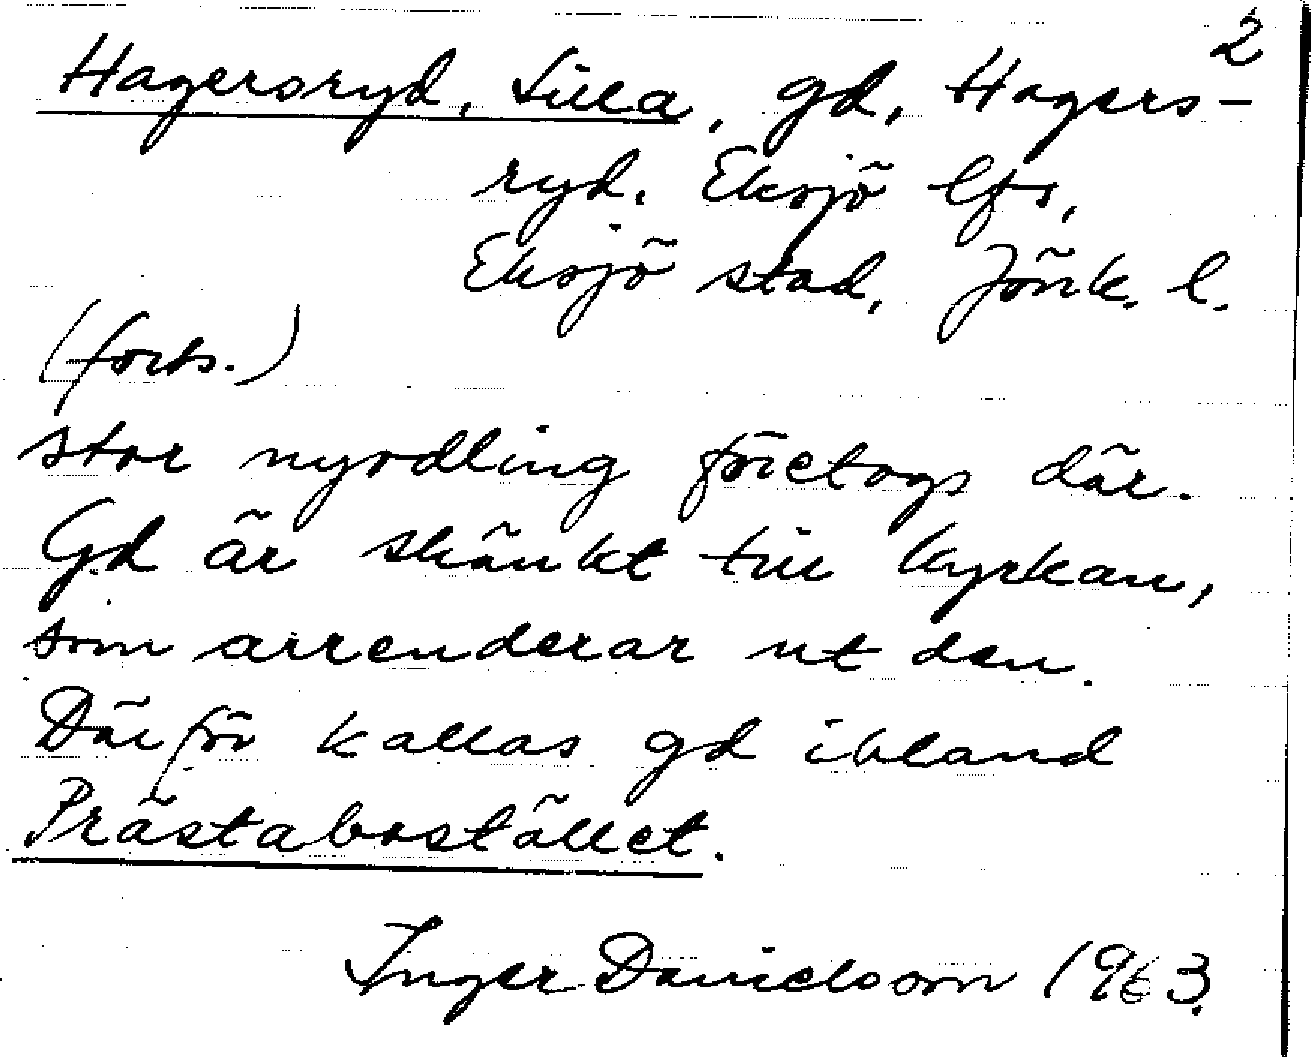 2
Hagersryd, Lilla, gd, Hagers-
ryd. Eksjö lfs,
Eksjö stad, Jönk. l.
(forts.)
stor nyodling företogs där.
Gd är skänkt till kyrkan,
som arrenderar ut den.
Därför kallas gd ibland
Prästabostället.
Inger Danielsson 1963.